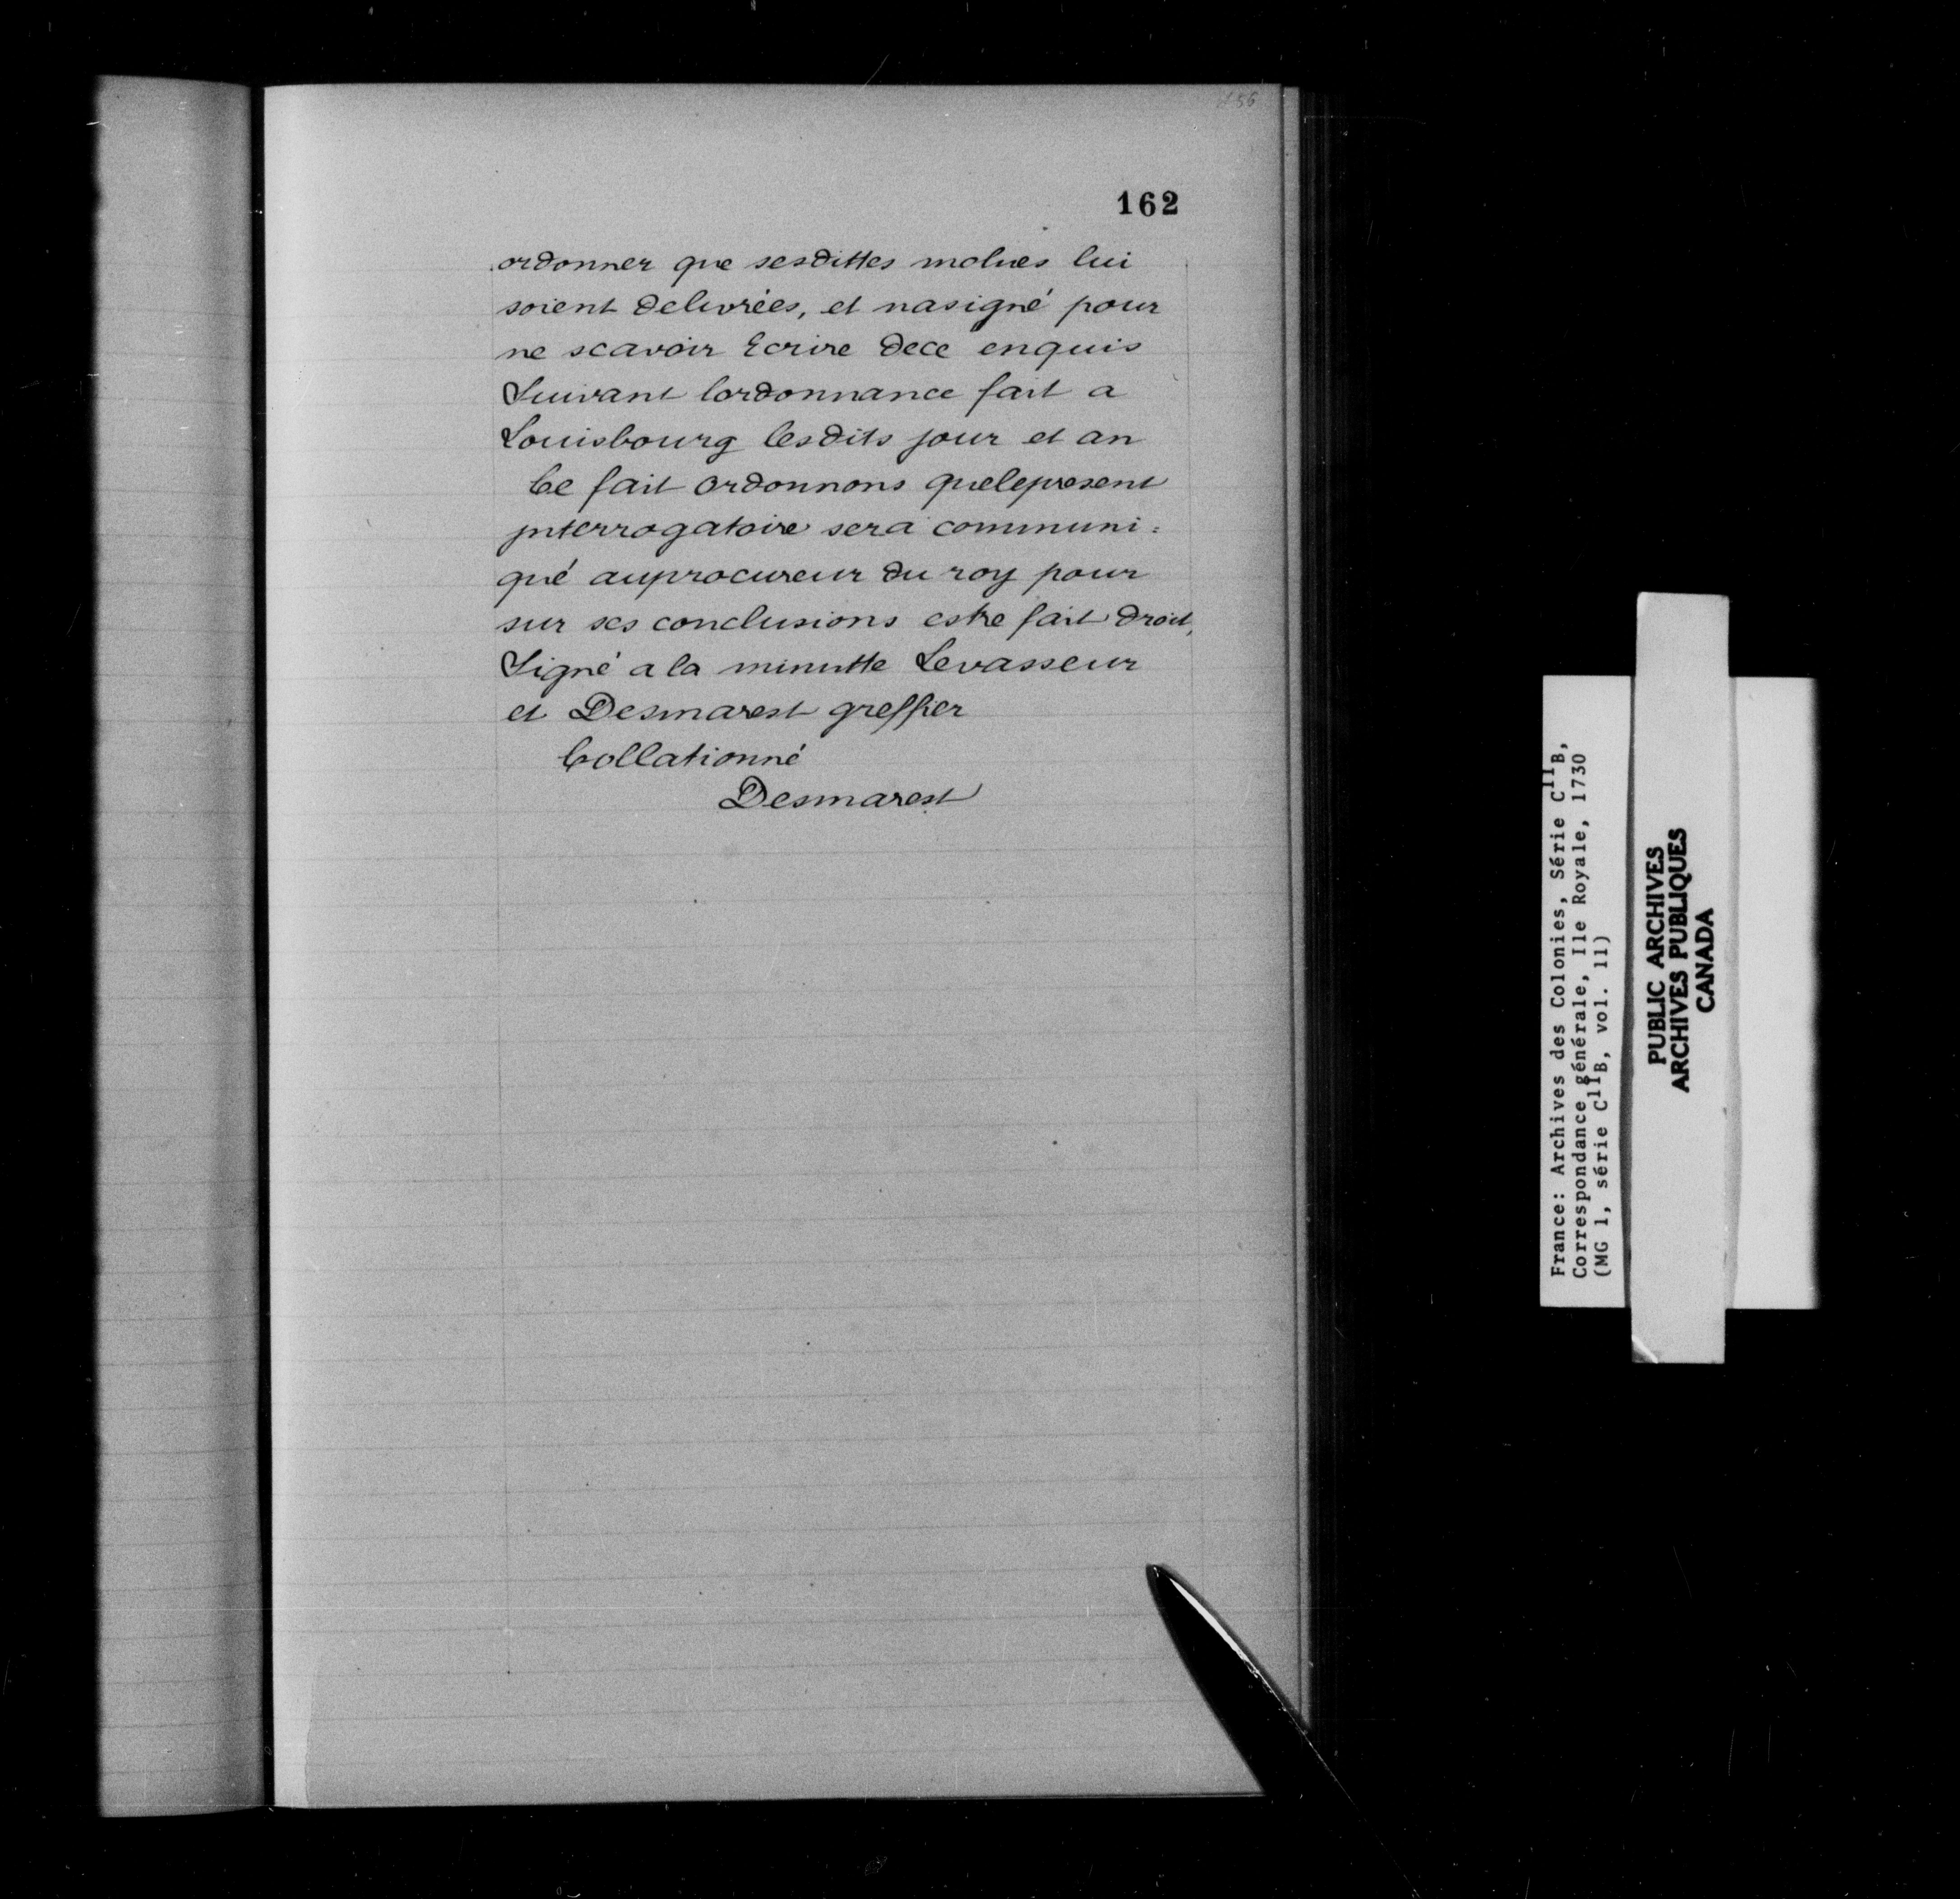 162
ordonner que sesdittes molues lui
soient delivrées, et nasigné pour
ne scavoir Ecrire dece enquis
Suivant lordonnance fait a
Louisbourg lesdits jour et an
Ce fait ordonnons quelepresent
jnterrogatoire sera communi=
qué auprocureur du roy pour
sur ses conclusions estre fait droit,
Signé a la minutte Levasseur
et Desmarest greffier
Collationné
Desmarest
France: Archives des Colonies, Série C11B,
Correspondance générale, Ile Royale, 1730
(MG 1, série C11B, vol. 11)
PUBLIC ARCHIVES
ARCHIVES PUBLIQUES
CANADA